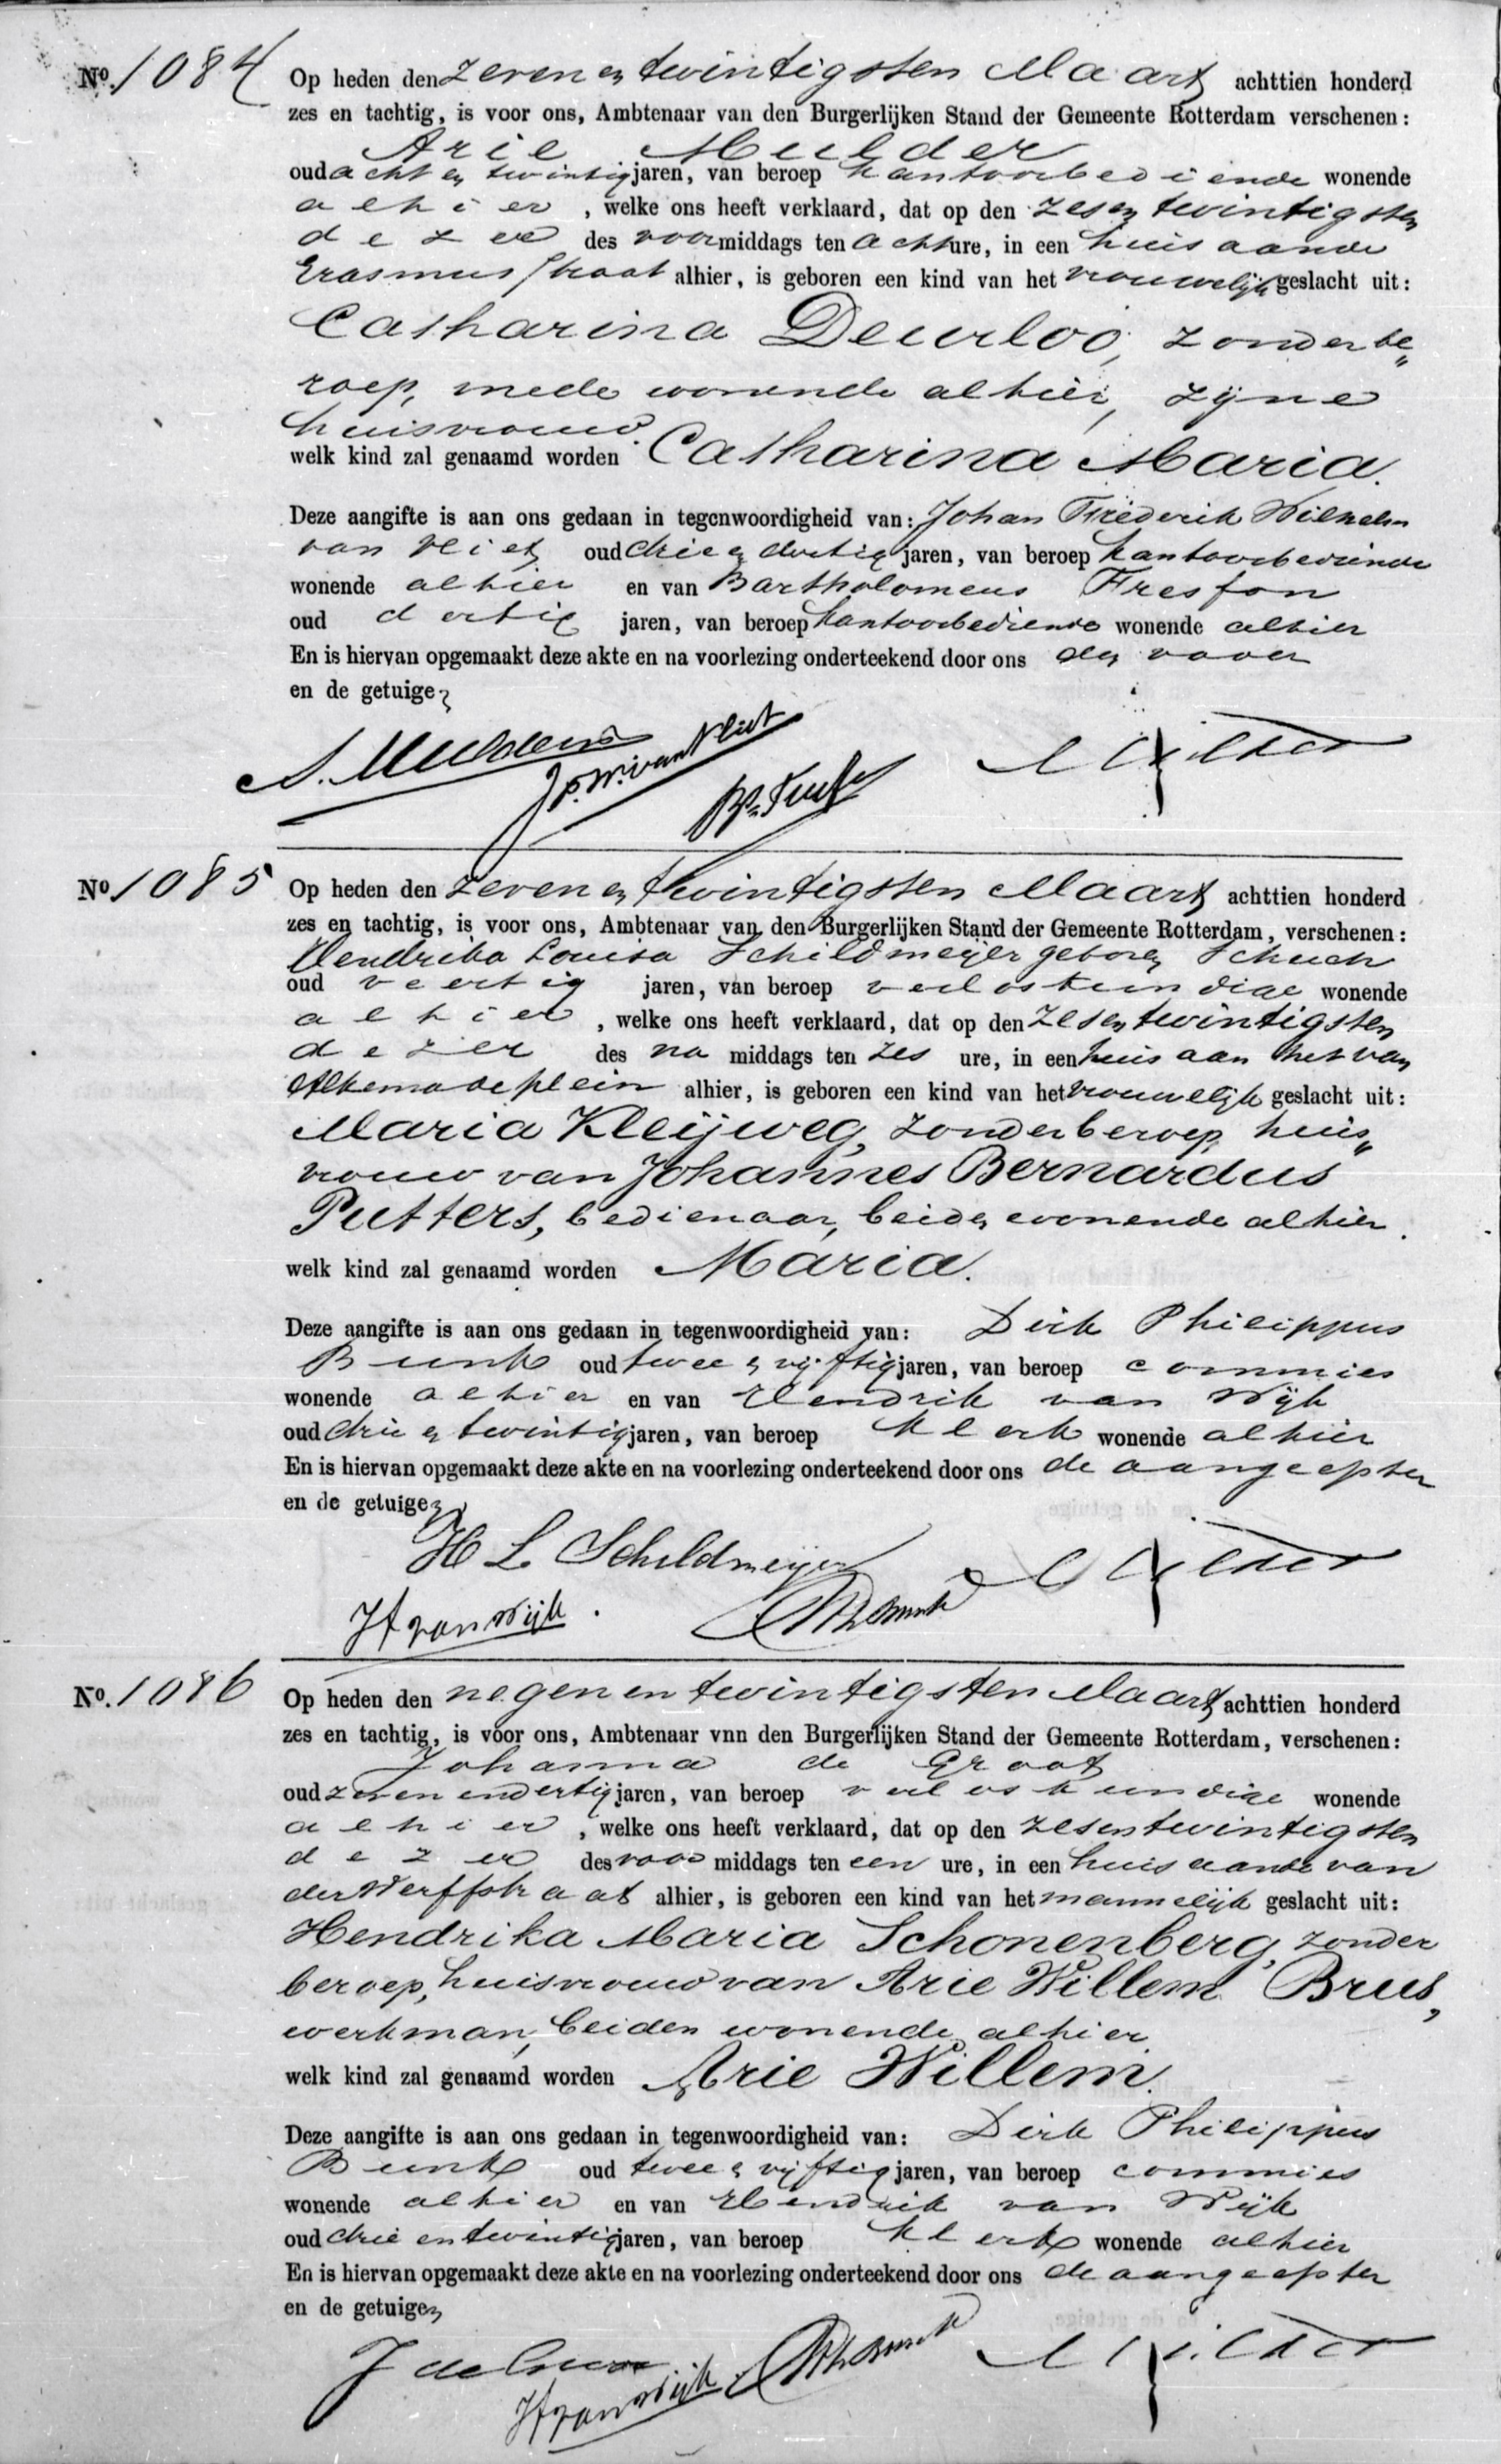 No. 1084 Op heden den zeven en twintigsten Maart achttien honderd
zes en tachtig, is voor ons, Ambtenaar van den Burgerlijken Stand der Gemeente Rotterdam verschenen:
Arie Mulder
oud acht en twintig jaren, van beroep kantoorbediende wonende
alhier, welke ons heeft verklaard, dat op den zesen twintigsten
dezer des voormiddags ten acht ure, in een huis aan de
Erasmusstraat alhier, is geboren een kind van het vrouwelijk geslacht uit:
Catharina Deurloo, zonder be„
roep, mede wonende alhier, zijne
huisvrouw.
welk kind zal genaamd worden Catharina Maria.
Deze aangifte is aan ons gedaan in tegenwoordigheid van: Johan Frederik Wilhelm
van Vliet oud drie en dertig jaren, van beroep kantoorbediende
wonende alhier en van Bartholomeus
oud dertig jaren, van beroep kantoorbediende wonende alhier
En is hiervan opgemaakt deze akte en na voorlezing onderteekend door ons den vader
en de getuigen
A. Mulder
J.F.W. van Vliet
No 1085 Op heden den zeven en twintigsten Maart achttien honderd
zes en tachtig, is voor ons, Ambtenaar van den Burgerlijken Stand der Gemeente Rotterdam, verschenen:
Hendrika Louisa Schildmeijer geboren Schuch
oud veertig jaren, van beroep verloskundige wonende
alhier, welke ons heeft verklaard, dat op den zesen twintigsten
dezer des na middags ten zes ure, in een huis aan het van
Alkemadeplein alhier, is geboren een kind van het vrouwelijk geslacht uit:
Maria Kleijweg, zonder beroep, huis„
vrouw van Johannes Bernardus
Putters, bedienaar, beiden wonende alhier.
welk kind zal genaamd worden Maria.
Deze aangifte is aan ons gedaan in tegenwoordigheid van: Dirk Philippus
Bunk oud twee en vijftig jaren, van beroep commies
wonende alhier en van Hendrik van Wijk
oud drie en twintig jaren, van beroep klerk wonende alhier
En is hiervan opgemaakt deze akte en na voorlezing onderteekend door ons de aangeefster
en de getuigen
H L Schildmeijer
H van Wijk.
No. 1086 Op heden den negen en twintigsten Maart achttien honderd
zes en tachtig, is voor ons, Ambtenaar vnn den Burgerlijken Stand der Gemeente Rotterdam, verschenen:
Johanna de Groot
oud zeven en dertig jaren, van beroep verloskundige wonende
alhier, welke ons heeft verklaard, dat op den zesen twintigsten
dezer des voor middags ten een ure, in een huis aan de van
der Werffstraat alhier, is geboren een kind van het mannelijk geslacht uit:
Hendrika Maria Schonenberg, zonder
beroep, huisvrouw van Arie Willem Brus,
werkman, beiden wonende alhier.
welk kind zal genaamd worden Arie Willem.
Deze aangifte is aan ons gedaan in tegenwoordigheid van: Dirk Philippus
Bunk oud twee en vijftig jaren, van beroep commies
wonende alhier en van Hendrik van Wijk
oud drie en twintig jaren, van beroep klerk wonende alhier
En is hiervan opgemaakt deze akte en na voorlezing onderteekend door ons de aangeefster
en de getuigen
J de Groot
H van Wijk